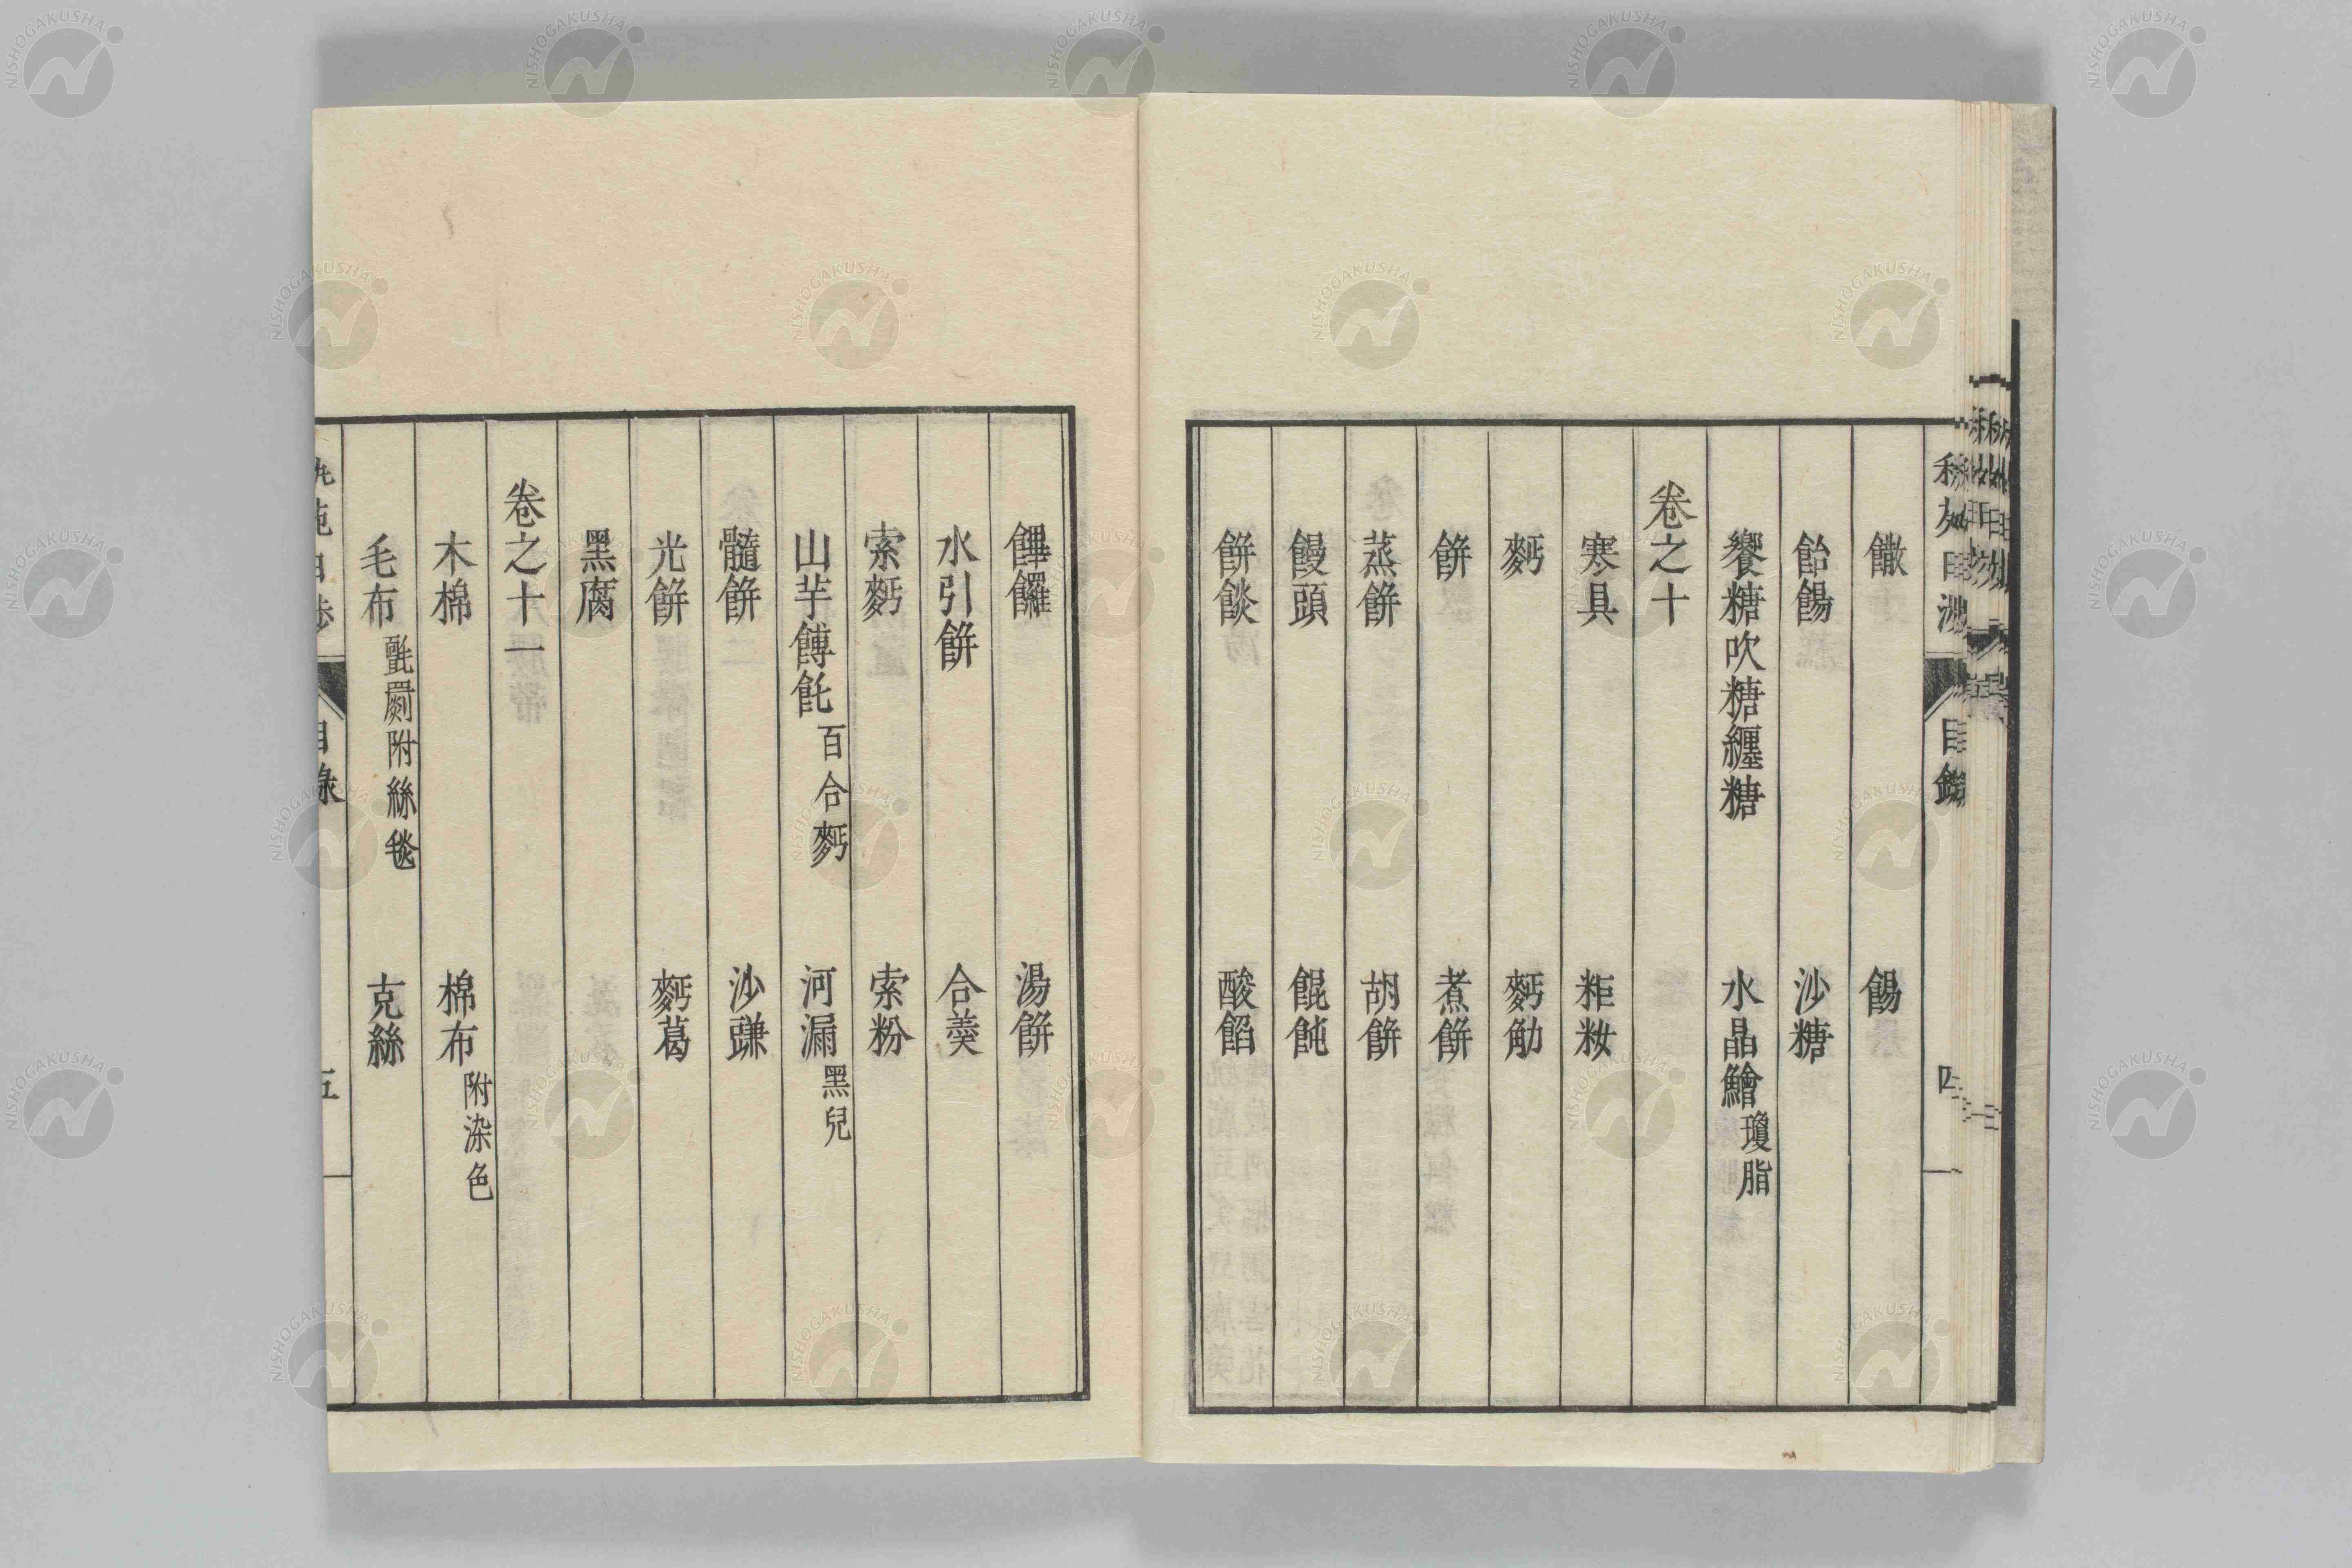 饊 餳
飴餳 沙糖
饗糖吹糖纏糖 水晶鱠瓊脂
卷之十
寒具 粔籹
麪 麪觔
餅 煮餅
蒸餅 胡餅
饅頭 餛飩
餅餤 酸餡
目錄 四
饆饠 湯餅
水引餅 合羹
索麪 索粉
山芋餺飥百合麪 河漏黑兒
髓餅 沙䜩
光餅 麪葛
黑腐
卷之十一
木棉 棉布附染色
毛布氈罽附絲毯 克絲
目錄 五
NISHOGAKUSHA